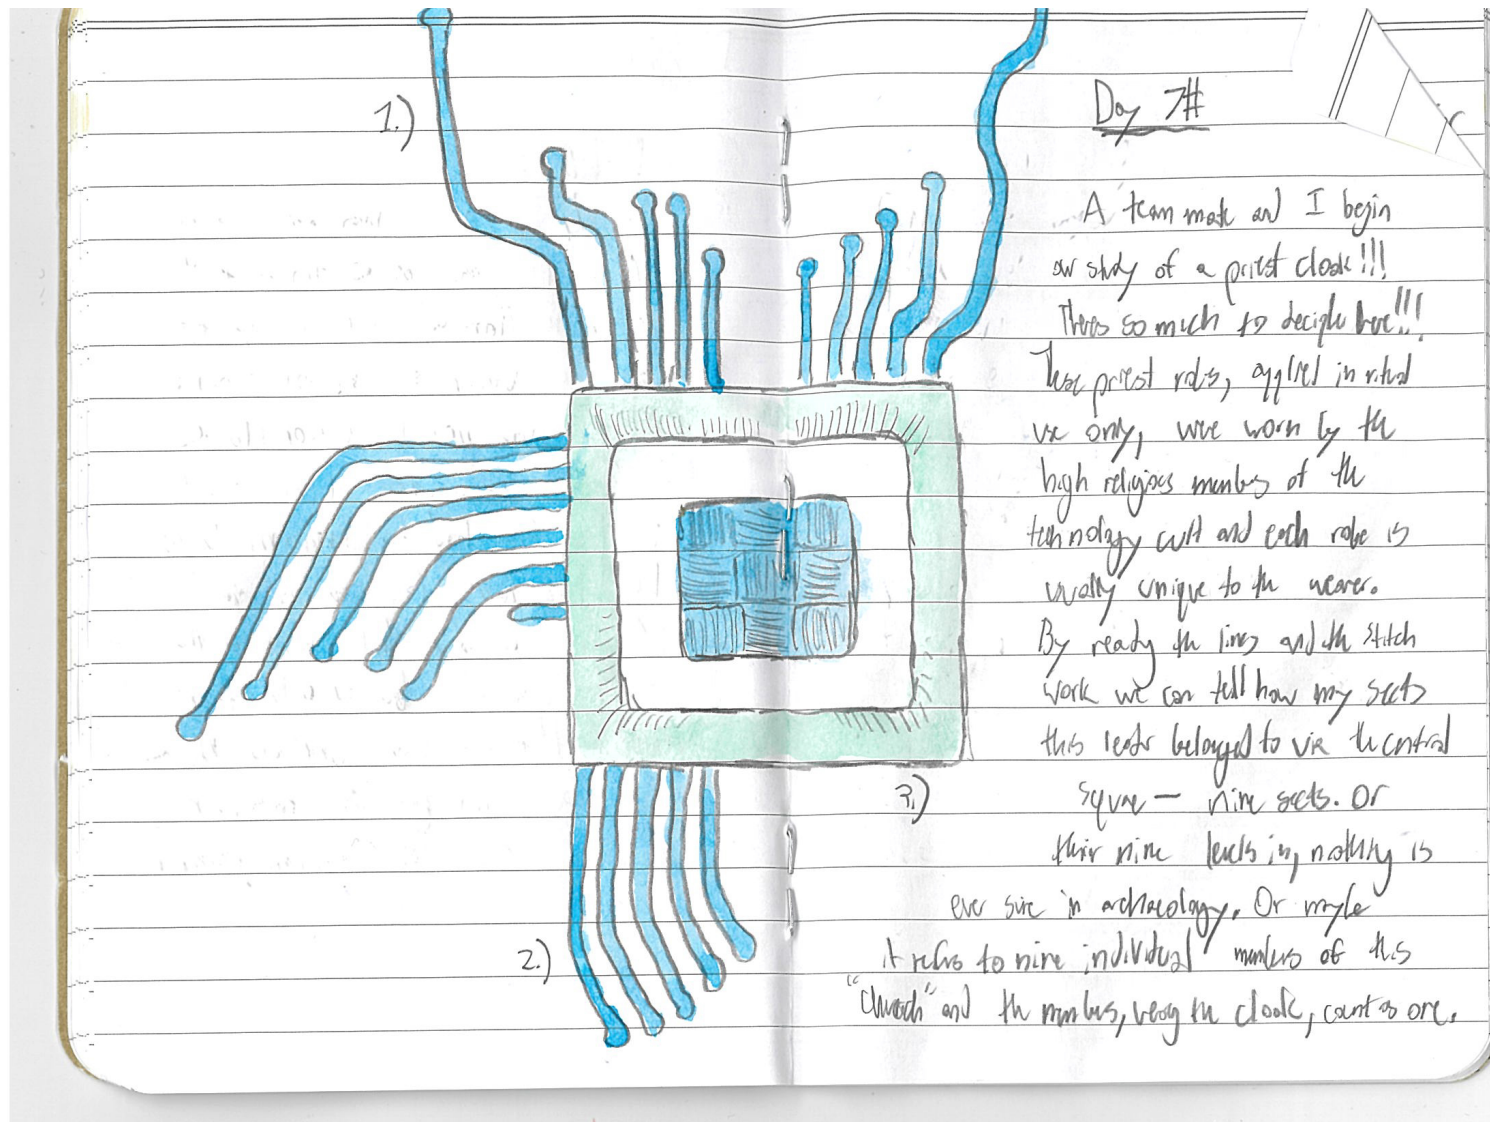 1.)
Day 7#
A team mate and I begin
our study of a priest cloak!!!
Theres so much to deciple here!!!
These priest robes, applied in ritual
use only, were worn by the
high religious members of the
technology cult and each robe is
usually unique to the wearer.
By ready the lines and the stitch
work we can tell how my sects
this leader belonged to via the central
square — nine sects. Or
their nine levels in, nothing is
ever sure in archaeology. Or maybe
it refers to nine individual members of this
"Church" and the members, the cloak, count as one.
2.)
3.)